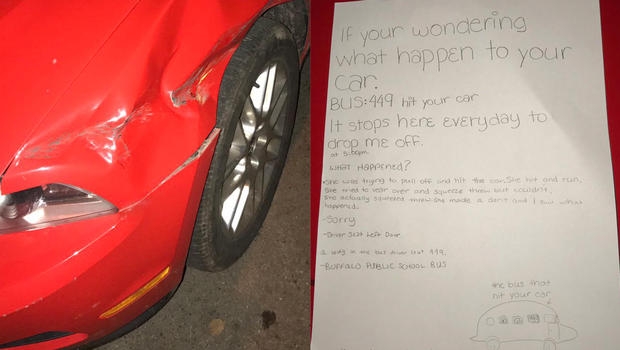 If your wondering
what happen to your
car.
BUS: 449 hit your car
It stops here everyday to
drop me off.
at 5:00pm
WHAT HAPPENED?
She was trying to pull off and hit the car. She hit and run.
She tried to vear over and squeeze threw but couldn't.
She actually squeezed threw. She made a dent and I saw what
happened.
-Sorry
-Driver Seat Left Door.
A lady in the bus driver seat 449.
-BUFFALO PUBLIC SCHOOL BUS
the bus that
hit your car